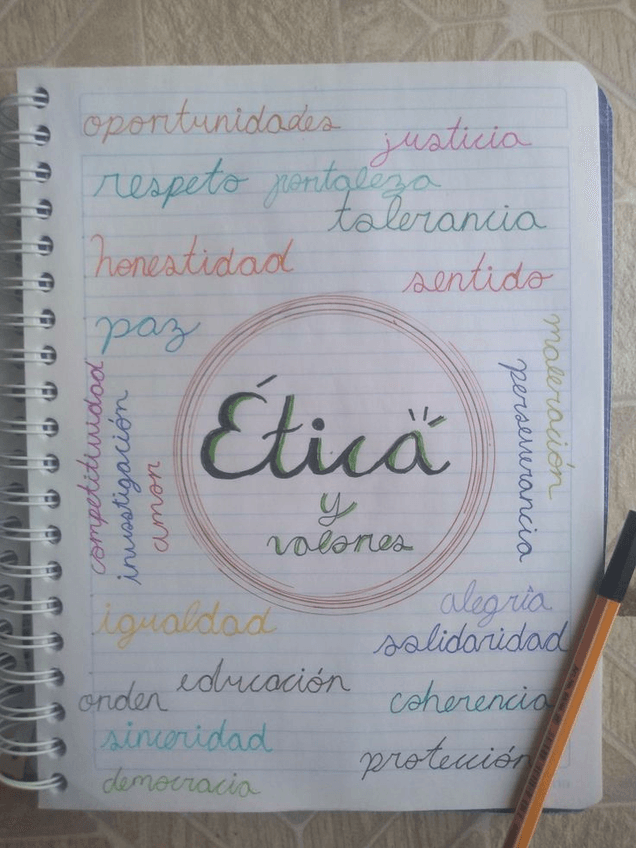 oportunidades
justicia
respeto fortaleza
tolerancia
honestidad
sentido
paz
competitividad
investigación
amor
Ética
y
valores
perseverancia
maleración
igualdad
alegría
solidaridad
educación
orden
coherencia
sinceridad
protección
democracia